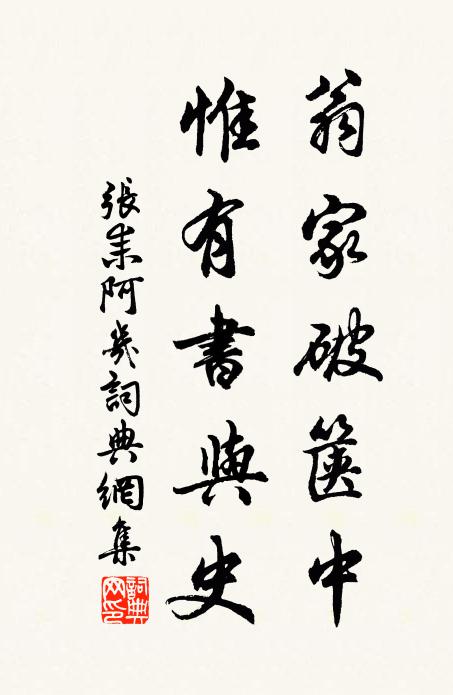 翁家破箧中
惟有書與史
張耒阿幾詞典網集
詞典網印